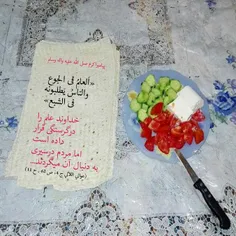 پیامبر اکرم صلی الله علیه وآله وسلم
«اَلعِلمُ فِی الجوعِ
وَالنّاسُ یَطلُبونَهُ
فِی الشَّبَعِ»
خداوند علم را
در گرسنگی قرار
داده است
اما مردم در سیری
به دنبال آن میگردند.